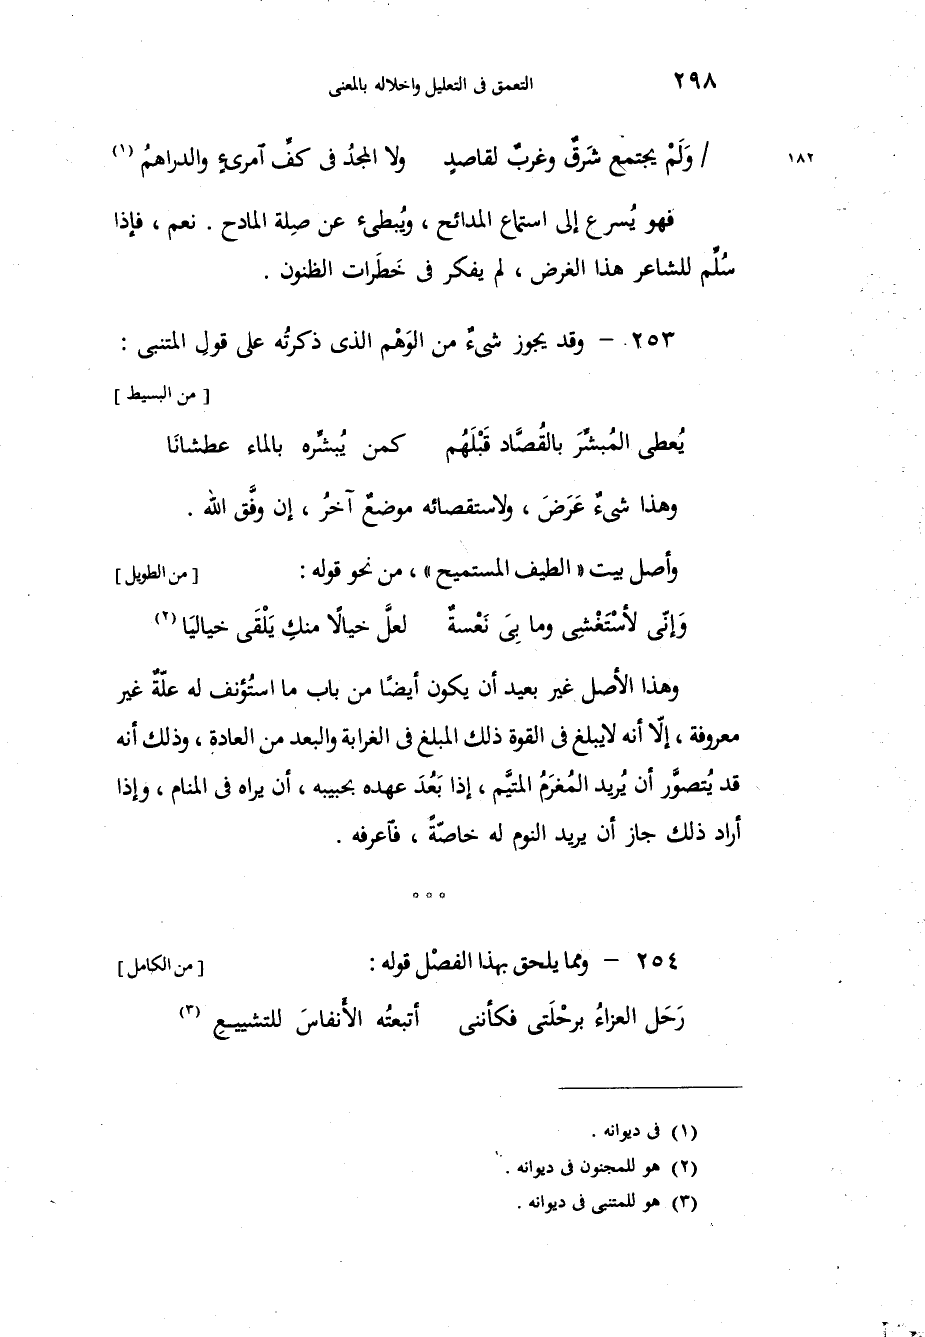 ٢٩٨ التعمق فى التعليل واخلاله بالمعنى
١٨٢ / وَلَمْ يجتمع شَرقٌ وغربٌ لقاصدٍ ولا المجدُ فى كفِّ آمرىءٍ والدراهمُ (١)
فهو يُسرع إلى استماع المدائح ، ويُبطىء عن صِلة المادح . نعم ، فإذا
سُلِّم للشاعر هذا الغرض ، لم يفكر فى خَطَرات الظنون .
٢٥٣ – وقد يجوز شىءٌ من الوَهْم الذى ذكرتُه على قولِ المتنبى :
[ من البسيط ]
يُعطى المُبشِّرَ بالقُصَّاد قَبْلَهُم كمن يُبشِّره بالماء عطشانَا
وهذا شىءٌ عَرَضَ ، ولاستقصائه موضعٌ آخرُ ، إن وفَّق الله .
وأصل بيت « الطيف المستميح » ، من نحو قوله : [ من الطويل ]
وَإنّى لأسْتَغْشِى وما بِىَ نَعْسةٌ لعلَّ خيالًا منكِ يَلْقَى خياليَا (٢)
وهذا الأصل غير بعيد أن يكون أيضًا من باب ما استُؤنف له علّةٌ غير
معروفة ، إلّا أنه لايبلغ فى القوة ذلك المبلغ فى الغرابة والبعد من العادة ، وذلك أنه
قد يُتصوَّر أن يُريد المُغرَمُ المتيَّم ، إذا بَعُدَ عهده بحبيبه ، أن يراه فى المنام ، وإذا
أراد ذلك جاز أن يريد النوم له خاصّةً ، فآعرفه .
° ° °
٢٥٤ – ومما يلحق بهذا الفصْل قوله : [ من الكامل ]
رَحَل العزاءُ برحْلَتى فكأننى أتبعتُه الأَنفاسَ للتشييعِ (٣)
(١) فى ديوانه .
(٢) هو للمجنون فى ديوانه .
(٣) هو للمتنبى فى ديوانه .